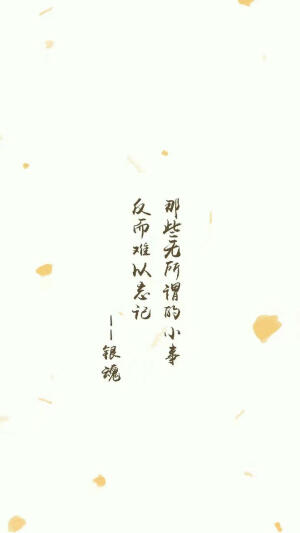 那些无所谓的小事
反而难以忘记
——银魂